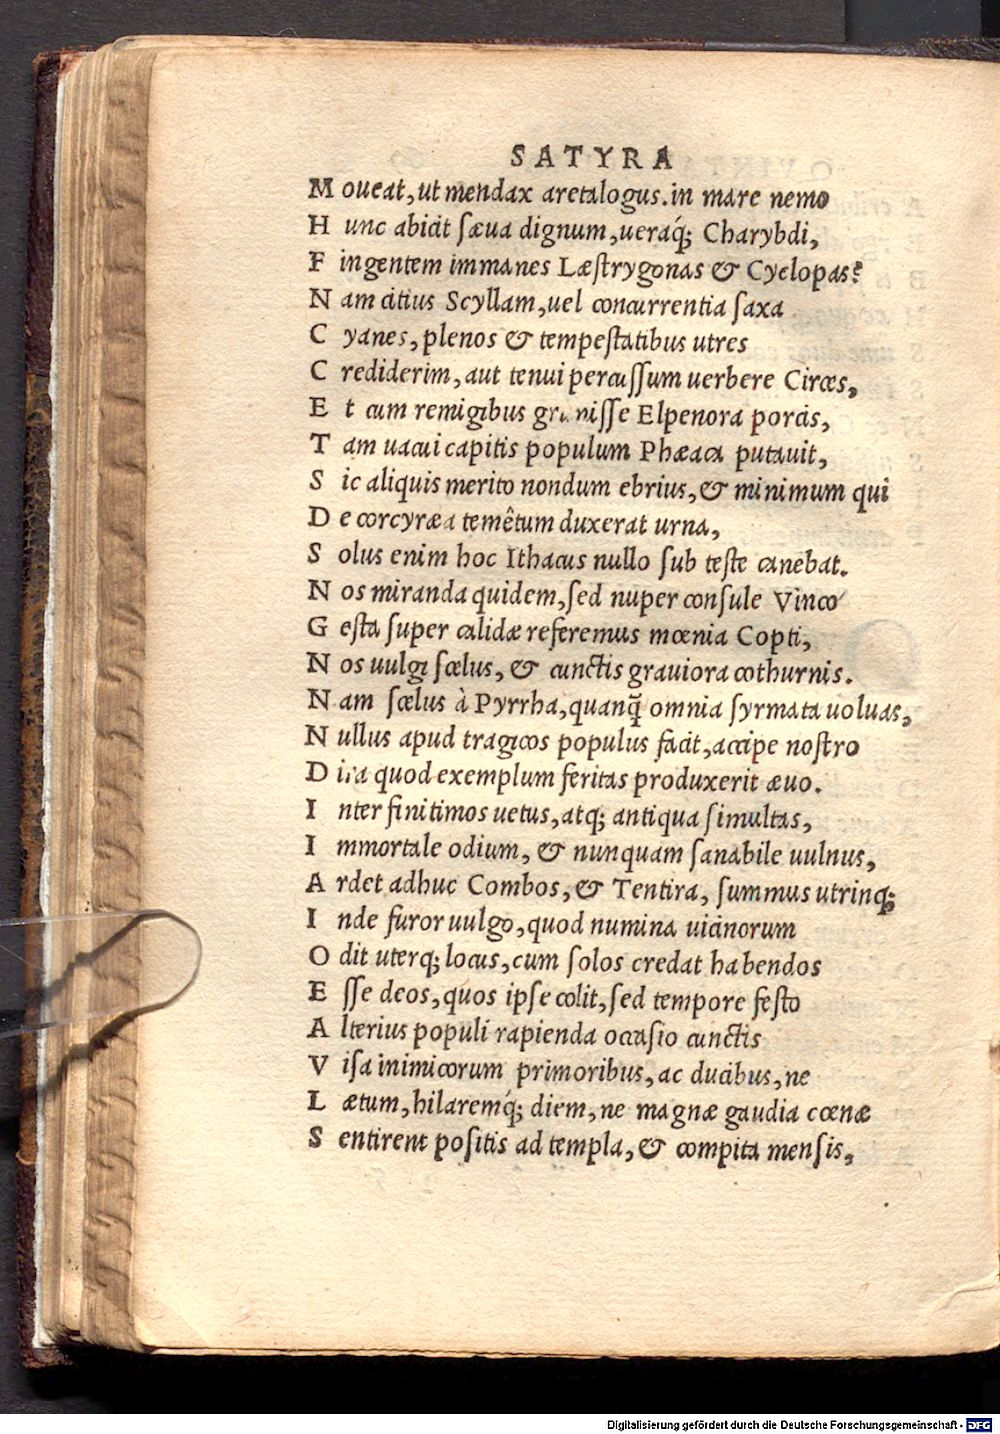 SATYRA
Moueat, ut mendax aretalogus. in mare nemo
Hunc abicit sæua dignum, ueraq́; Charybdi,
Fingentem immanes Læstrygonas & Cyclopas?
Nam citius Scyllam, uel concurrentia saxa
Cyanes, plenos & tempestatibus utres
Crediderim, aut tenui percussum uerbere Circes,
Et cum remigibus grunisse Elpenora porcis,
Tam uacui capitis populum Phæaca putauit,
Sic aliquis merito nondum ebrius, & minimum qui
De corcyræa temêtum duxerat urna,
Solus enim hoc Ithacus nullo sub teste canebat.
Nos miranda quidem, sed nuper consule Vinco
Gesta super calidæ referemus mœnia Copti,
Nos uulgi scelus, & cunctis grauiora cothurnis.
Nam scelus à Pyrrha, quanq̃ omnia syrmata uoluas,
Nullus apud tragicos populus facit, accipe nostro
Dira quod exemplum feritas produxerit æuo.
Inter finitimos uetus, atq; antiqua simultas,
Immortale odium, & nunquam sanabile uulnus,
Ardet adhuc Combos, & Tentira, summus utrinq;
Inde furor uulgo, quod numina uicinorum
Odit uterq; locus, cum solos credat habendos
Esse deos, quos ipse colit, sed tempore festo
Alterius populi rapienda occasio cunctis
Visa inimicorum primoribus, ac ducibus, ne
Lætum, hilaremq́; diem, ne magnæ gaudia cœnæ
Sentirent positis ad templa, & compita mensis,
Digitalisierung gefördert durch die Deutsche Forschungsgemeinschaft - DFG